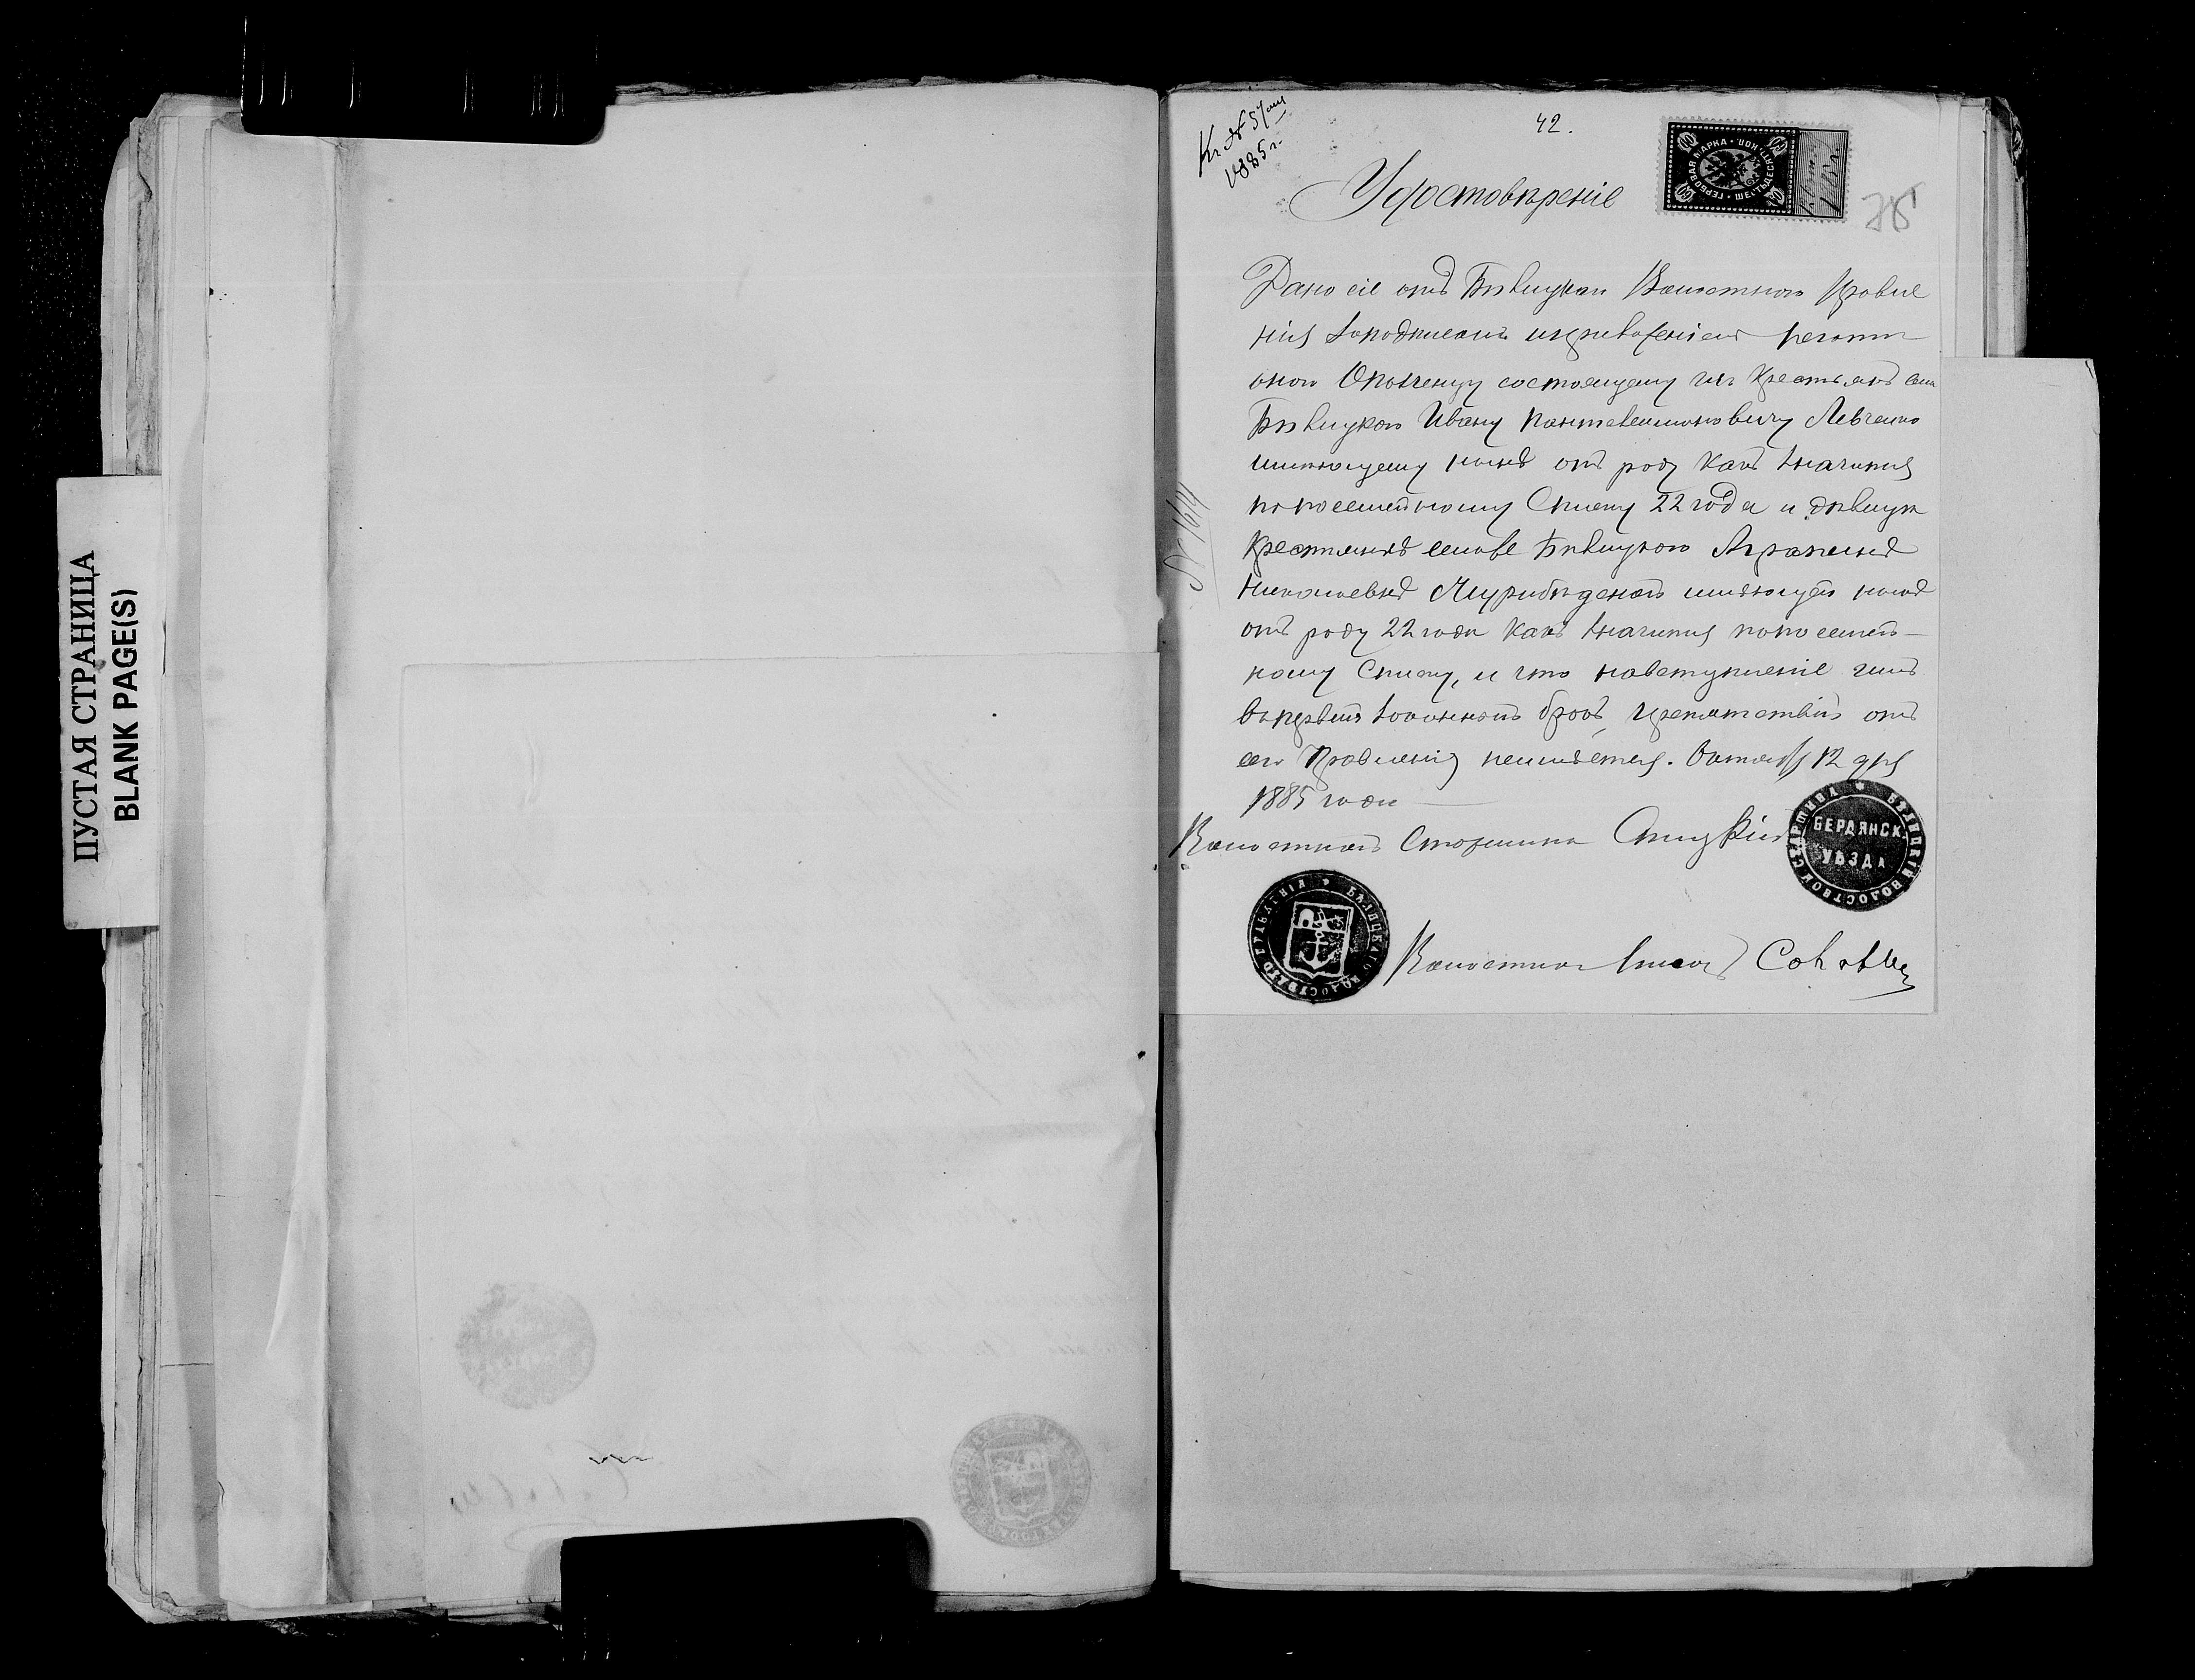 ПУСТАЯ СТРАНИЦА
BLANK PAGE(S)
Къ № 57
1885 г.
42.
ГЕРБОВАЯ МАРКА • ШЕСТЬДЕСЯТЪ КОП.
60 60 60 60
Удостовѣреніе
№ 1614
Дано сіе отъ Бѣлицкаго Волостного Правле
нія за подписомъ и приложеніемъ печати
Ополченцу состоящему изъ крестьянъ села
Бѣлицкого Ивану Пантелеимоновичу Левченко
имѣющему нынѣ отъ роду какъ значится
по посемейному списку 22 года и дѣвицѣ
крестьянкѣ села Бѣлицкого Агрипинѣ
Николаевнѣ имѣющей нынѣ
отъ роду 22 года какъ значится по посемей-
ному списку, и что на вступленіе имъ
въ первый законный бракъ, препятствій отъ
сего Правленія неимѣется. Октября 12 дня
1885 года
Волостной Старшина
БЕРДЯНСК. УѢЗДА
БѢЛИЦКІЙ ВОЛОСТНОЙ СТАРШИНА
БѢЛИЦКАГО ВОЛОСТНАГО ПРАВЛЕНІЯ
Волостной Писарь